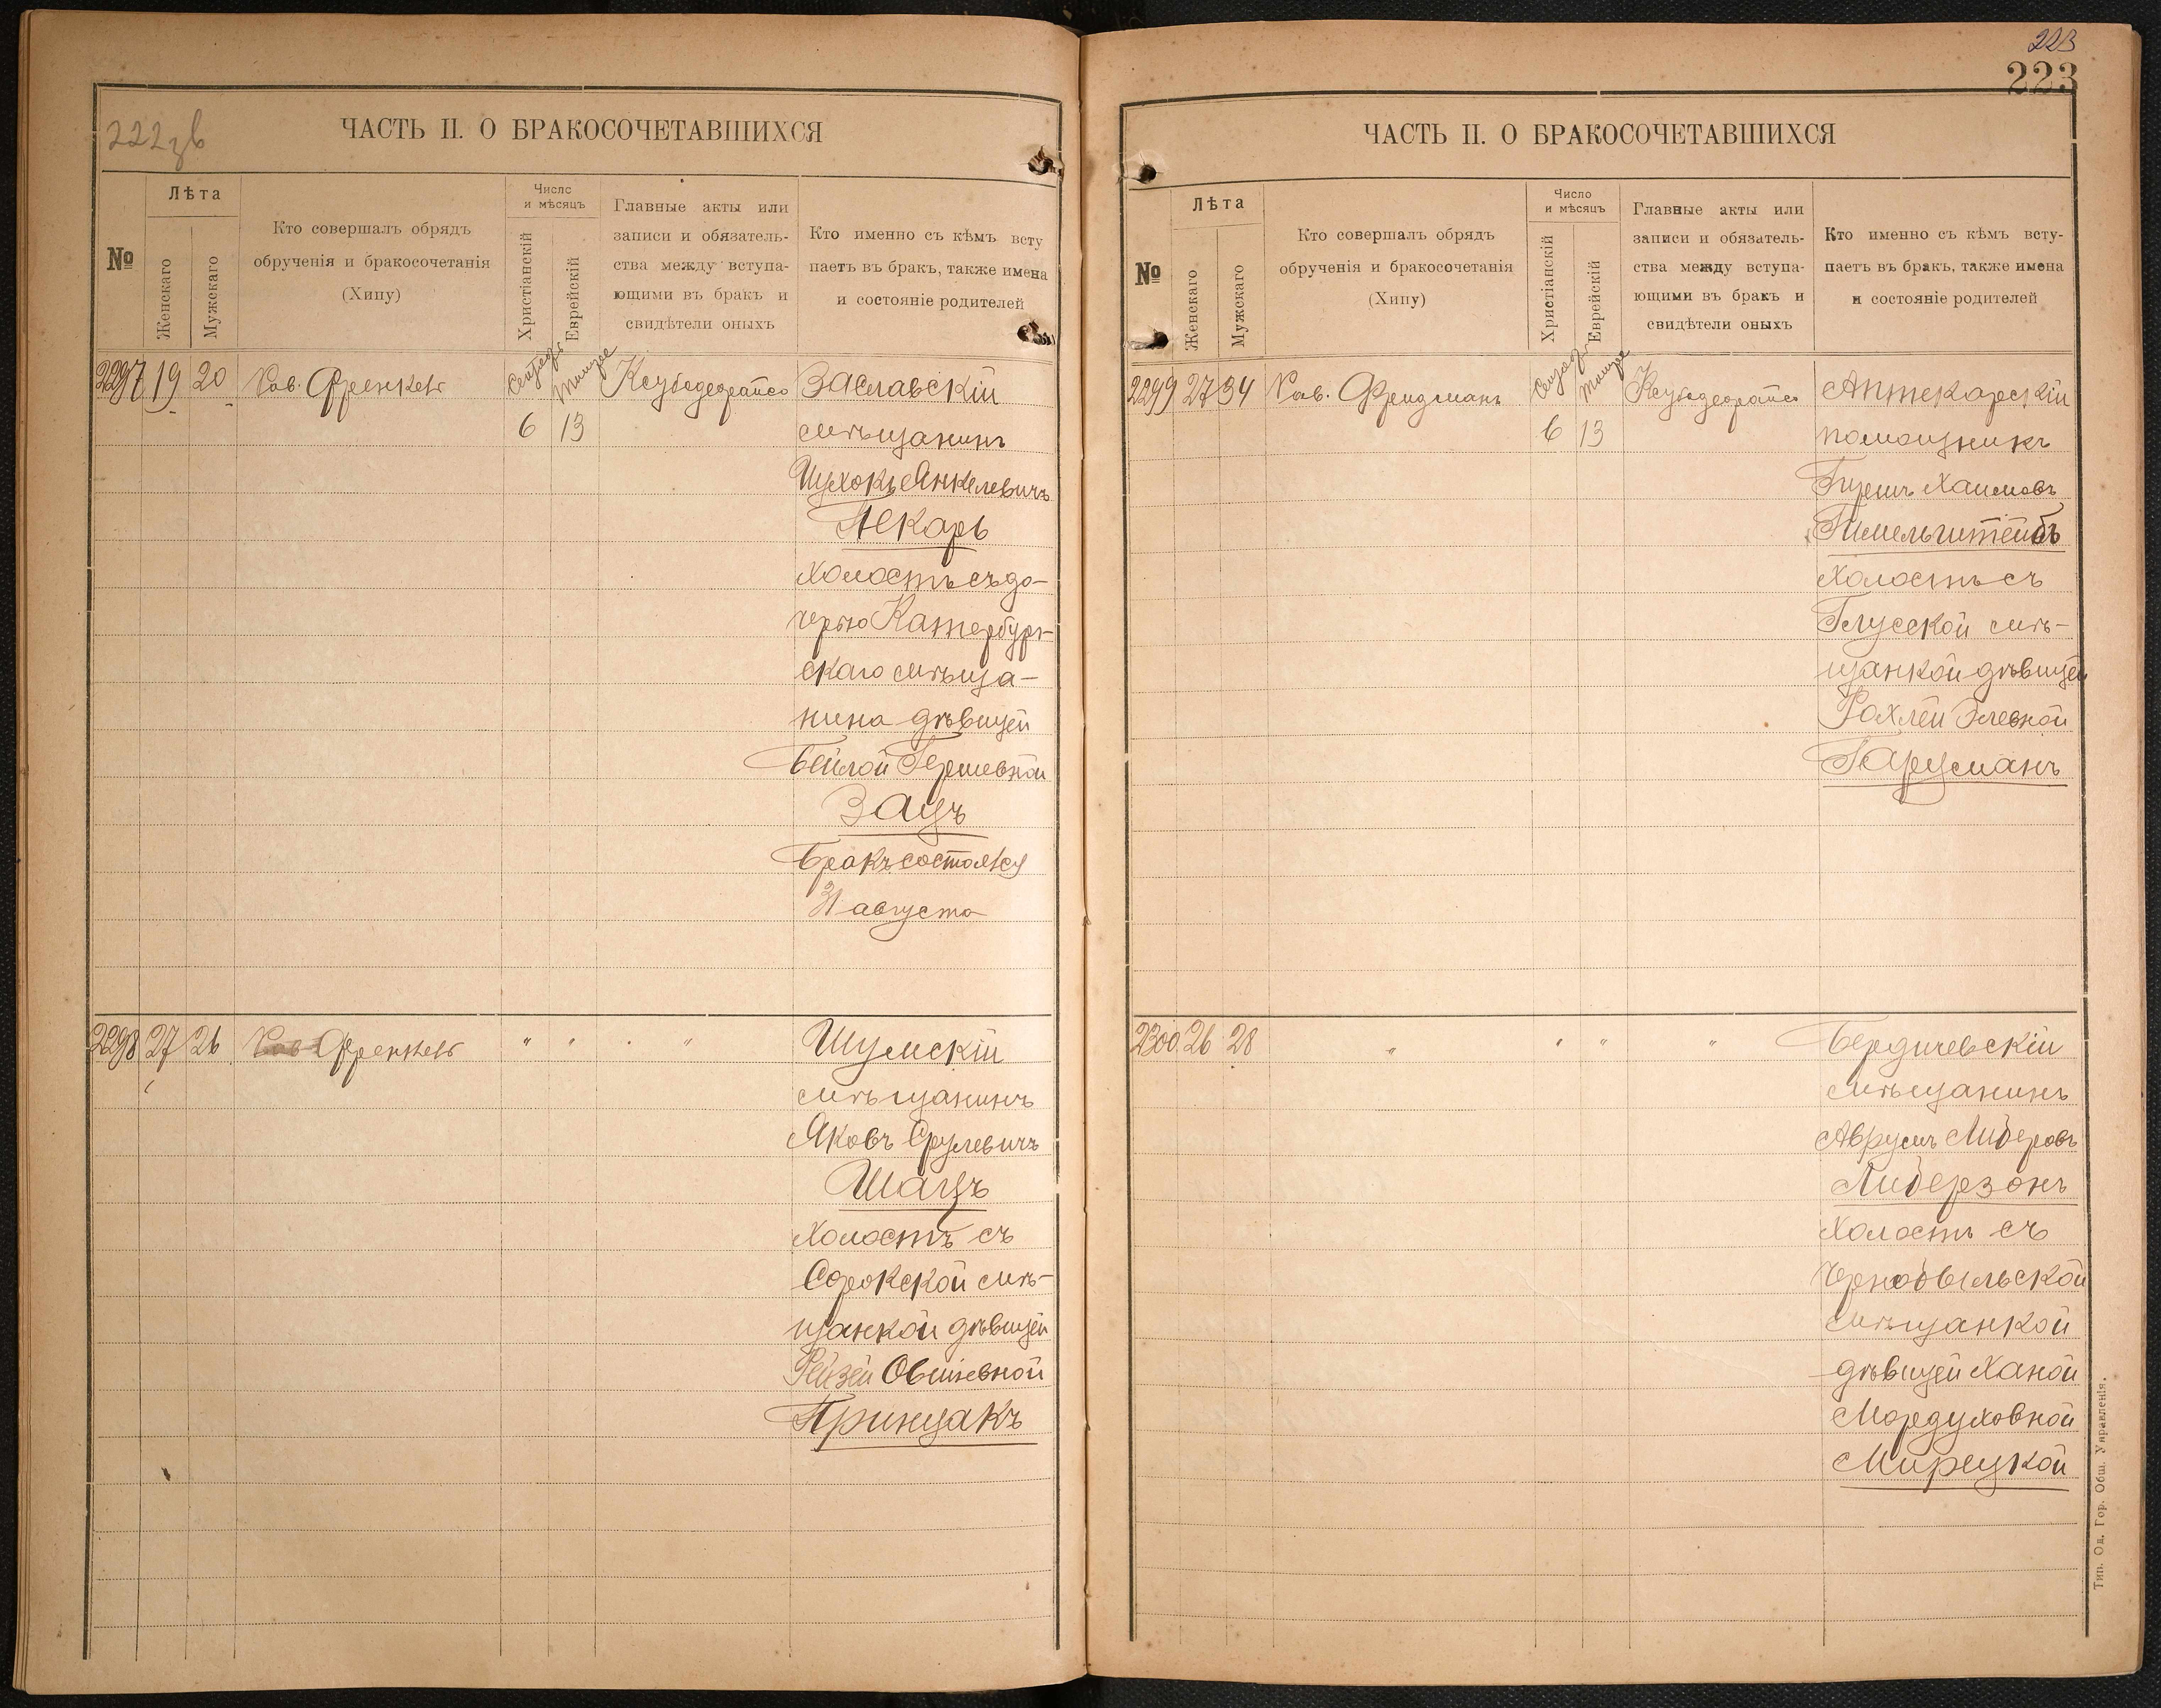 222зв
ЧАСТЬ II. О БРАКОСОЧЕТАВШИХСЯ
№
Лѣта
Женскаго
Мужскаго
Кто совершалъ обрядъ
обрученія и бракосочетанія
(Хипу)
Число
и мѣсяцъ
Христіанскій
Еврейскій
Главные акты или
записи и обязатель-
ства между вступа-
ющими въ бракъ и
свидѣтели оныхъ
Кто именно съ кѣмъ всту
паетъ въ бракъ, также имена
и состояніе родителей
2297 19 20 Рав. Френкель Сентябр Тишре Ксубедеграйсо Заславскій
6 13 мѣщанинъ
Ицхокъ Янкелевичъ
Пекарь
холостъ съ до-
черью Катербург-
скаго мѣща-
нина дѣвицей
Бейлой Гершевной
Зацъ
Бракъ состоялся
31 августа
2298 27 26 Рав Френкель " " " Шумскій
мѣщанинъ
Яковъ Срулевичъ
Шацъ
холостъ съ
Сорокской мѣ-
щанкой дѣвицей
Рейзей Овшіевной
Принцакъ
223
223
ЧАСТЬ II. О БРАКОСОЧЕТАВШИХСЯ
№
Лѣта
Женскаго
Мужскаго
Кто совершалъ обрядъ
обрученія и бракосочетанія
(Хипу)
Число
и мѣсяцъ
Христіанскій
Еврейскій
Главные акты или
записи и обязатель-
ства между вступа-
ющими въ бракъ и
свидѣтели оныхъ
Кто именно съ кѣмъ всту-
паетъ въ бракъ, также имена
и состояніе родителей
2299 27 34 Рав. Фридманъ Сентябр Тишре Ксубедеграйсо Аптекарскій
6 13 помощникъ
Хаимовъ
холостъ съ
Глусской мѣ-
щанкой дѣвицей
Рохлей Элевной
Гарусманъ
2300 26 28 " " " " Бердичевскій
мѣщанинъ
Аврумъ Либеровъ
Либерзонъ
холостъ съ
Чернобыльской
мѣщанкой
дѣвицей Ханой
Мордуховной
Мирецкой
Тип. Од. Гор. Общ. Управленія.